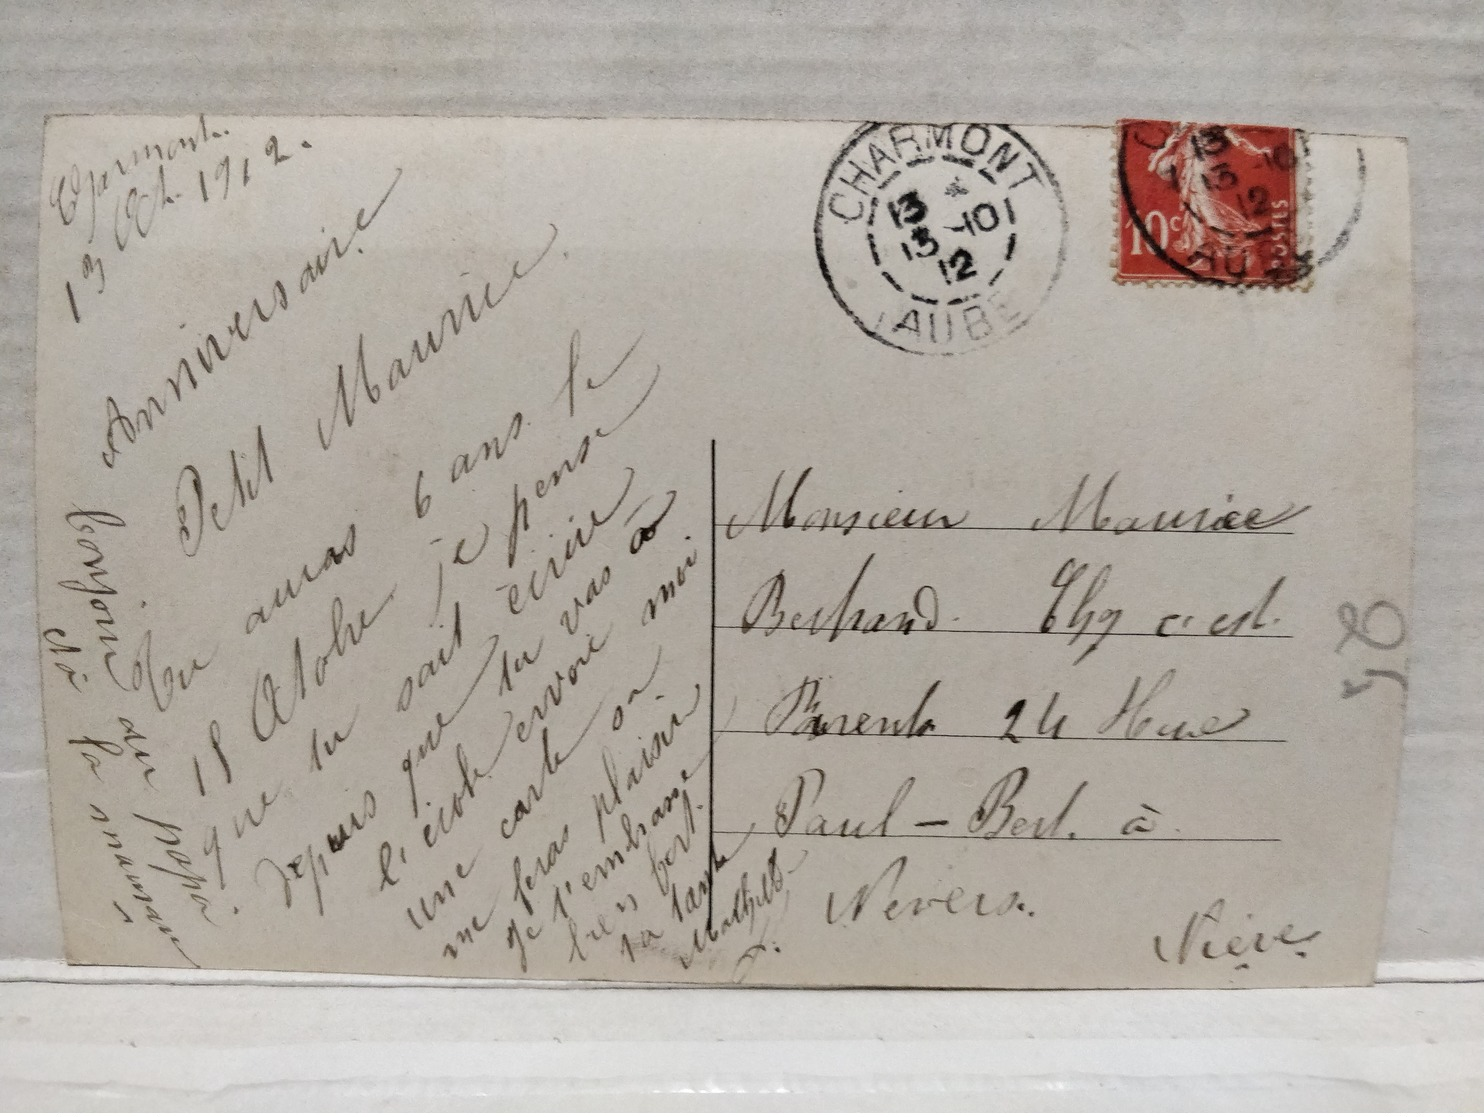 Charmont.
13 Oct. 1912.
Anniversaire
Petit Maurice.
Tu auras 6 ans le
18 Octobre je pense
que tu sait écrire
depuis que tu vas à
l'école envoie moi
une carte sa
me feras plaisir
Je t'embrasse
bien fort.
ta tante
Mathilde
bonjour au papa
et à la maman
CHARMONT
13 *
13 -10
12
AUBE
13
13 -10
12
AUBE
10c
POSTES
Monsieur Maurice
Bertrand. Chez c. est.
Parents 24 Rue
Paul-Bert. à
Nevers.
Nièvre